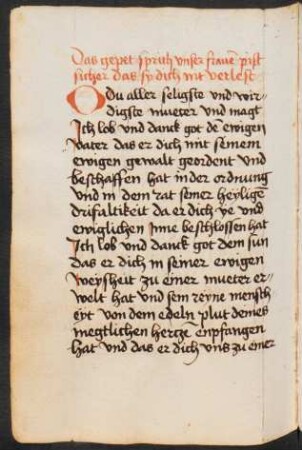 Das gepet sprich vnser frawē pist
sicher das sy dich nit verlest
O Du aller seligste vnd wir-
digste mueter vnd magt
Ich lob vnd danck got dē ewigen
vater das er dich mit seinem
ewigen gewalt geordent vnd
beschaffen hat in der ordnung
vnd in dem rat seiner heyligē
drifaltikeit da er dich ye vnd
ewiglichen inne beschlossen hat
Ich lob vnd danck got dem sun
das er dich in seiner ewigen
weysheit zu einer mueter er-
welt hat vnd sein reyne mensch
eyt von dem edeln plut deines
megtlichen hertzē enpfangen
hat vnd das er dich vns zu einer